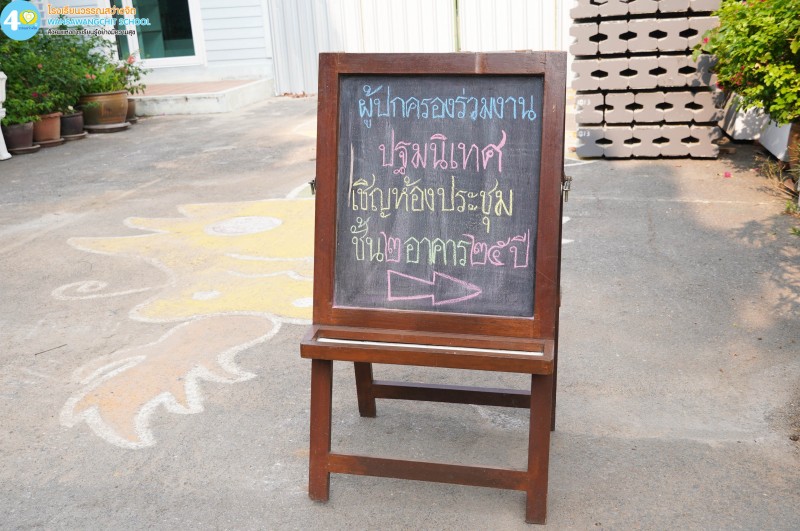 โรงเรียนวรรณสว่างจิต
WANSAWANGCHIT SCHOOL
ผู้ปกครองร่วมงาน
ปฐมนิเทศ
เชิญห้องประชุม
ชั้น๒ อาคาร๒๕ปี